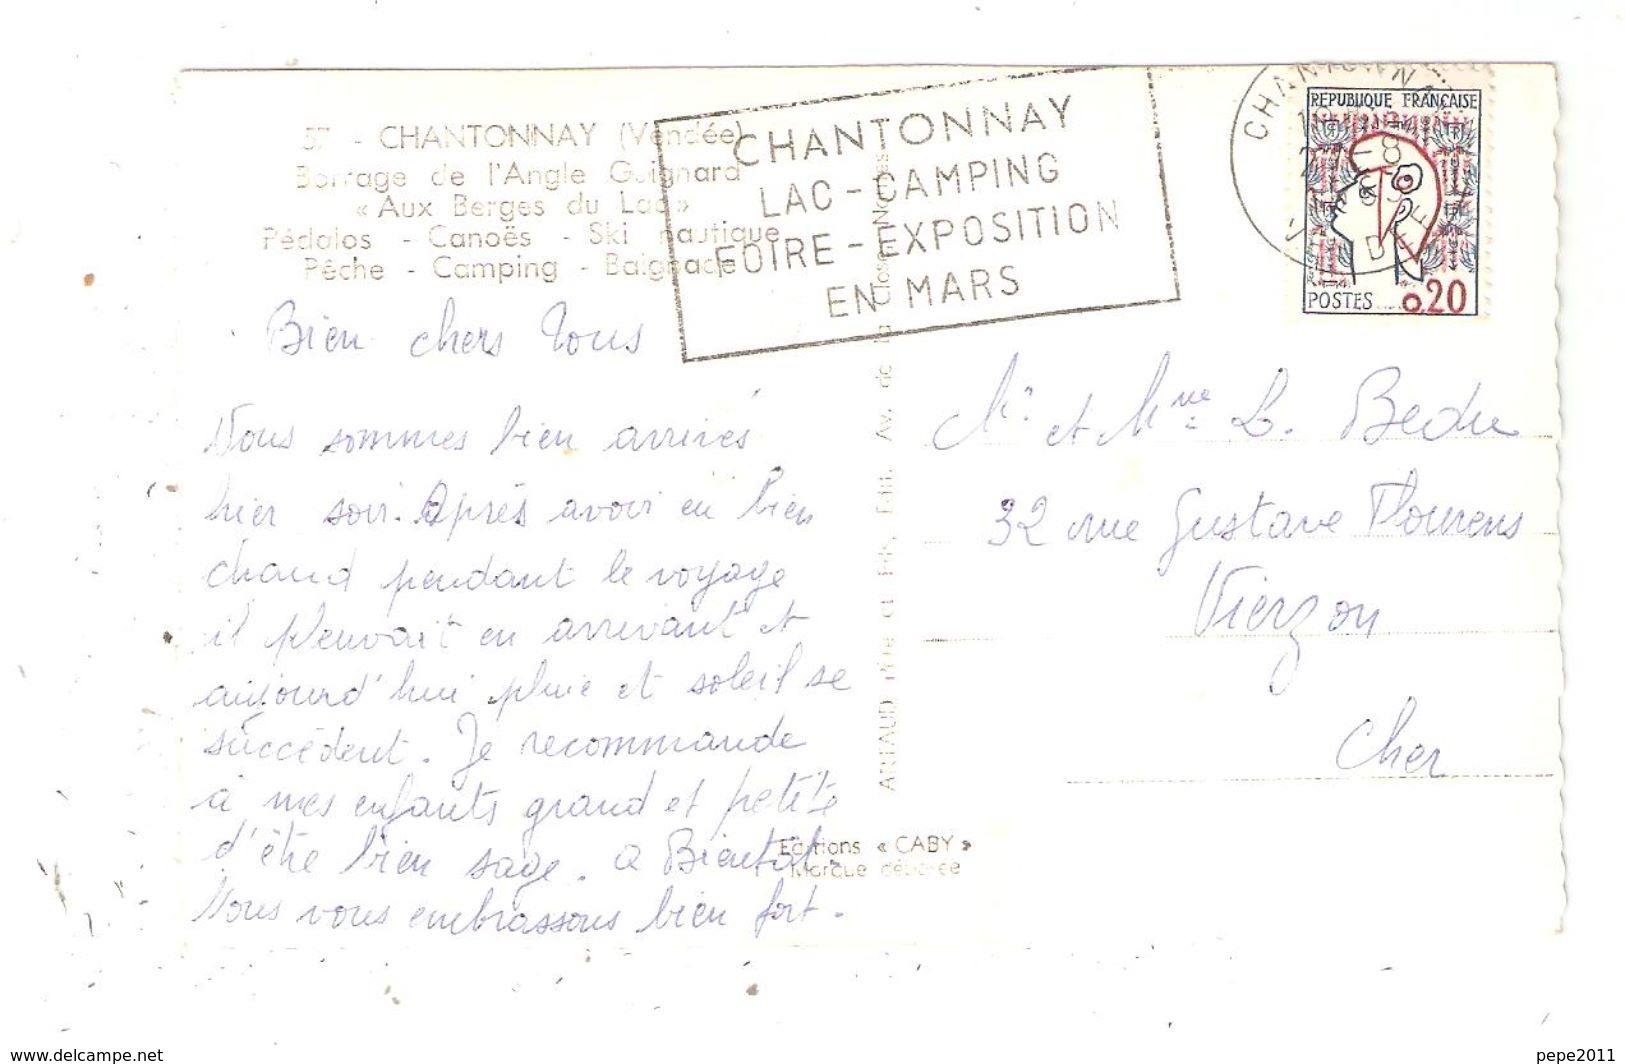 57 - CHANTONNAY (Vendée)
Barrage de l'Angle Guignard
« Aux Berges du Lac »
Pédalos - Canoës - Ski nautique
Pêche - Camping - Baignade
CHANTONNAY
LAC - CAMPING
FOIRE - EXPOSITION
EN MARS
CHANTONNAY
VENDEE
REPUBLIQUE FRANÇAISE
POSTES 0,20
Bien chers Tous
Nous sommes bien arrivés
hier soir. Après avoir eu bien
chaud pendant le voyage
il pleuvait en arrivant et
aujourd'hui pluie et soleil se
succèdent. Je recommande
à mes enfants grand et petite
d'être bien sage. a Bientôt.
Nous vous embrassons bien fort.
ARTAUD Père et Fils, Edit. Av. de la Close Nantes
Editions « CABY »
Marque déposée
Mr et Mme L. Bedu
32 rue Gustave Flourens
Vierzon
Cher
www.delcampe.net
pepe2011